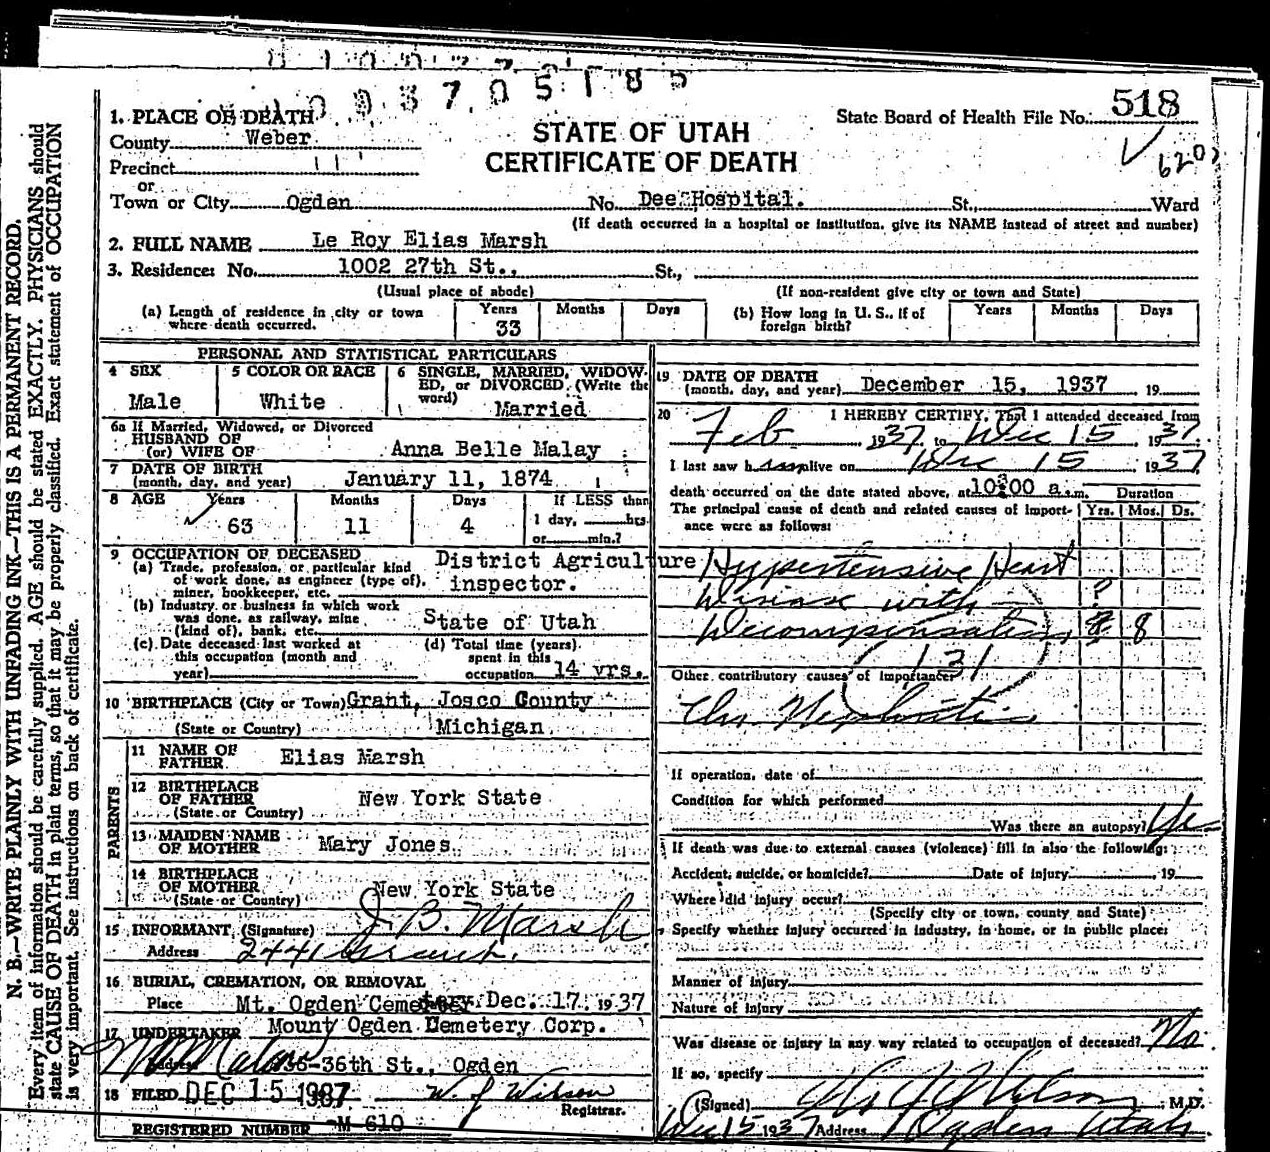 093705185
1. PLACE OF DEATH
County Weber
Precinct
or
Town or City Ogden No. Dee Hospital. St., Ward
STATE OF UTAH
CERTIFICATE OF DEATH
State Board of Health File No. 518
(If death occurred in a hospital or institution, give its NAME instead of street and number)
2. FULL NAME Le Roy Elias Marsh
3. Residence: No. 1002 27th St., St.,
(Usual place of abode) (If non-resident give city or town and State)
(a) Length of residence in city or town where death occurred. Years 33 Months Days
(b) How long in U. S., if of foreign birth? Years Months Days
PERSONAL AND STATISTICAL PARTICULARS
4 SEX Male
5 COLOR OR RACE White
6 SINGLE, MARRIED, WIDOWED, or DIVORCED (Write the word) Married
6a If Married, Widowed, or Divorced
HUSBAND OF
(or) WIFE OF Anna Belle Malay
7 DATE OF BIRTH
(month, day, and year) January 11, 1874
8 AGE Years 63 Months 11 Days 4 If LESS than
1 day, hrs.
or min.?
9 OCCUPATION OF DECEASED
(a) Trade, profession, or particular kind of work done, as engineer (type of), miner, bookkeeper, etc. District Agriculture inspector.
(b) Industry or business in which work was done, as railway, mine (kind of), bank, etc. State of Utah
(c) Date deceased last worked at this occupation (month and year)
(d) Total time (years) spent in this occupation 14 yrs.
10 BIRTHPLACE (City or Town) Grant, Josco County
(State or Country) Michigan
PARENTS
11 NAME OF FATHER Elias Marsh
12 BIRTHPLACE OF FATHER (State or Country) New York State
13 MAIDEN NAME OF MOTHER Mary Jones
14 BIRTHPLACE OF MOTHER (State or Country) New York State
15 INFORMANT, (Signature) J. B. Marsh
Address 2441 Grant.
16 BURIAL, CREMATION, OR REMOVAL
Place Mt. Ogden Cemetery Dec. 17, 1937
17 UNDERTAKER Mount Ogden Cemetery Corp.
Address 36th St., Ogden
18 FILED DEC 15 1937 W. J. Wilson
Registrar.
REGISTERED NUMBER M 610
19 DATE OF DEATH
(month, day, and year) December 15, 1937 19
20 I HEREBY CERTIFY, That I attended deceased from
Feb 1937 to Dec 15, 1937.
I last saw him alive on Dec 15 1937
death occurred on the date stated above, at 10:00 a.m. Duration
The principal cause of death and related causes of importance were as follows: Yrs. Mos. Ds.
Hypertensive Heart
Disease with ?
Decompensation 8
131
Other contributory causes of importance:
Chr. Nephritis
If operation, date of
Condition for which performed
Was there an autopsy? Yes
If death was due to external causes (violence) fill in also the following:
Accident, suicide, or homicide? Date of injury 19
Where did injury occur?
(Specify city or town, county and State)
Specify whether injury occurred in industry, in home, or in public place:
Manner of injury
Nature of injury
Was disease or injury in any way related to occupation of deceased? No.
If so, specify
(Signed) Wilson, M.D.
Dec 15 1937 Address Ogden Utah
N. B.—WRITE PLAINLY WITH UNFADING INK—THIS IS A PERMANENT RECORD.
Every item of information should be carefully supplied. AGE should be stated EXACTLY. PHYSICIANS should
state CAUSE OF DEATH in plain terms, so that it may be properly classified. Exact statement of OCCUPATION
is very important. See instructions on back of certificate.